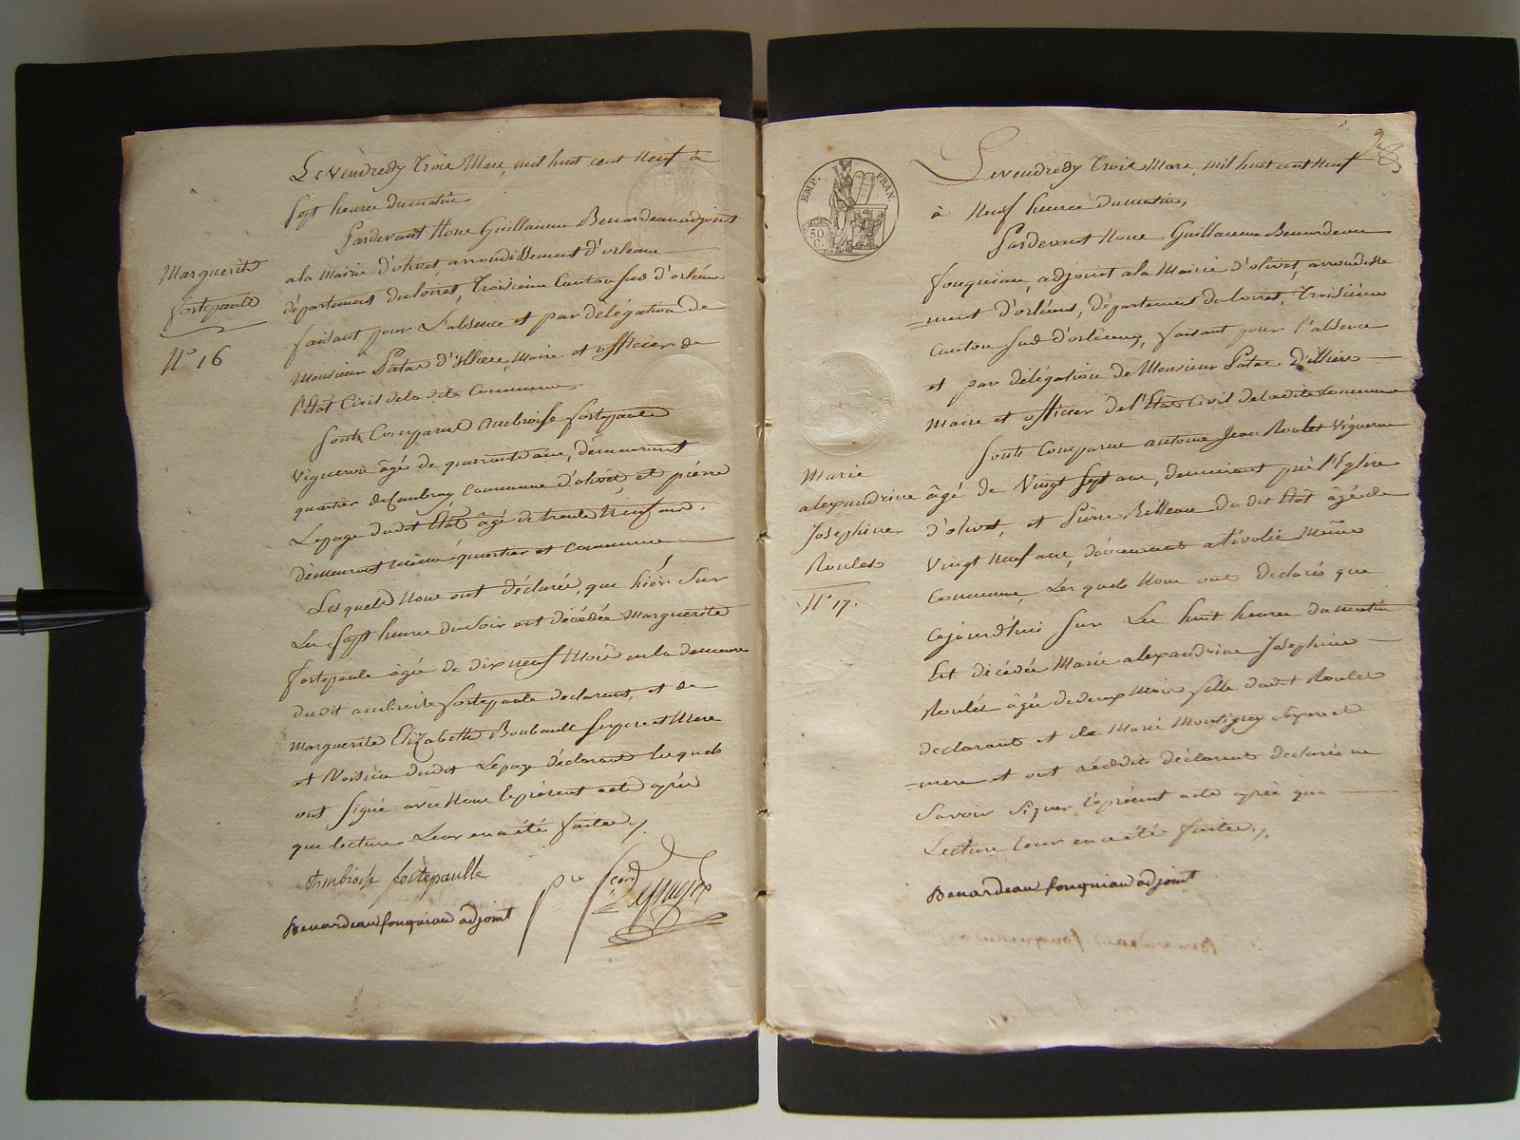 Le vendredy trois Mars, mil huit cent neuf à
sept heures du matin
Pardevant Nous Guillaume Benardeau adjoint
a la Mairie d'olivet, arrondissement d'orleans
département du loiret, troisieme Canton sud d'orléans
faisant pour l'absence et par délégation de
Monsieur Patas d'illiers, Maire et officier de
l'Etat Civil de la dite Commune.
Sont Comparus ambroise fortepaulle
Vigneron âgé de quarante ans, demeurant
quartier de Caubray Commune d'olivet, et pierre
Lepage dudit Etat âgé de trente neuf ans,
demeurant même quartier et commune
Lesquels Nous ont déclarés, que hiér Sur
Les Sept heures du Soir est décédée Marguerite
fortepaule âgée de dix neuf Mois en la demeure
dudit ambroise fortepaule declarant, et de
Marguerite Elizabeth Boubault ses pere et Mere
et Voisine dudit Lepage déclarant lesquels
ont Signé avec Nous le présent acte après
que lecture Leur en a été faite./.
Ambroise fortepaulle
Benardeau fouquiau adjoint
Marguerite
fortepaulle
N° 16
EMP. FRAN.
50
C.
Le vendredy trois Mars, mil huit cent neuf
à Neuf heures du matin,
Pardevant Nous Guillaume Benardeau
fouquiau, adjoint a la Mairie d'olivet, arrondisse
ment d'orléans, département du loiret, troisiéme
Canton sud d'orléans, faisant pour l'absence
et par délégation de Monsieur Patas d'illiers
Maire et officier de l'Etat Civil de la dite Commune
Sont Comparus antoine Jean Roulet Vigneron
âgé de Vingt Sept ans, demeurant près l'Eglise
d'olivet, et Pierre Billeau du dit Etat âgé de
Vingt Neuf ans, demeurant a tivolie Même
Commune, Lesquels Nous ont declarés que
cejourd'hui Sur Les huit heures du matin
Est décédée Marie alexandrine Josephine
Roulet âgée de deux Mois fille dudit Roulet
declarant et de Marie Montigny ses pere et
mere et ont cesdits déclarant declarés ne
Savoir Signer le présent acte après que
Lecture leur en a été faite./.
Benardeau fouquiau adjoint
Marie
alexandrine
Josephine
Roulet
N° 17.